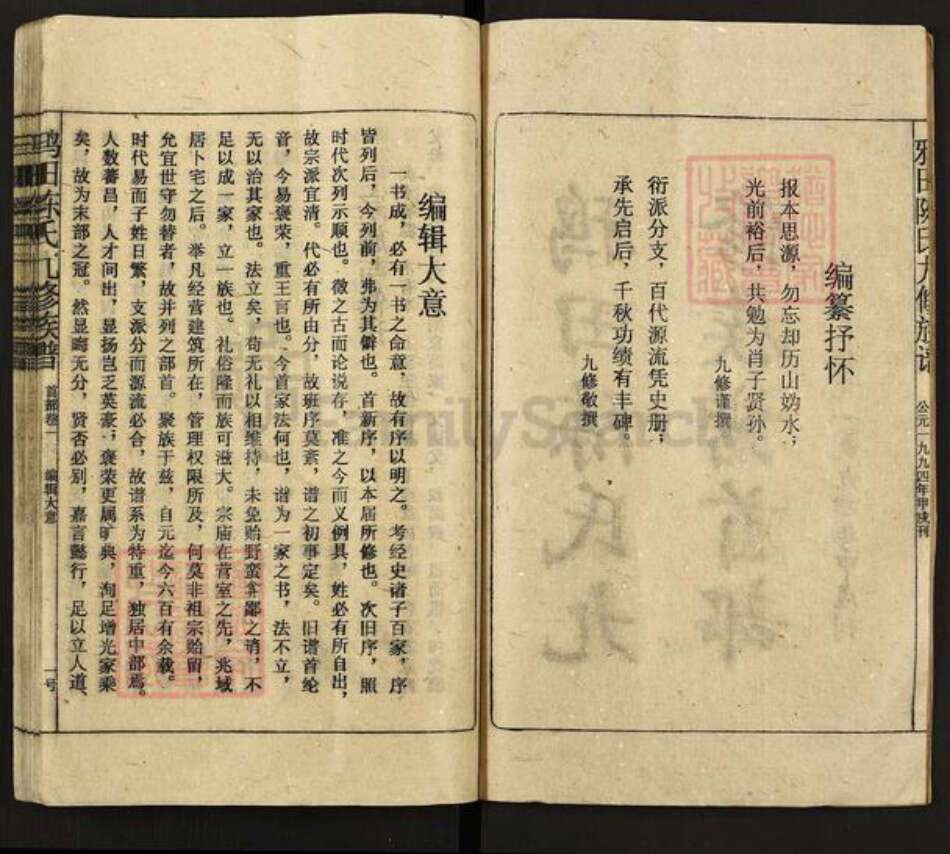 编纂抒怀
报本思源，勿忘却历山妫水；
光前裕后，共勉为肖子贤孙。
九修谨撰
衍派分支，百代源流凭史册；
承先启后，千秋功绩有丰碑。
九修敬撰
陈氏九修族谱
公元一九九四年甲戌刊
编辑大意
一书成，必有一书之命意，故有序以明之。考经史诸子百家，序
皆列后，今列前，弗为其僻也。首新序，以本届所修也。次旧序，照
时代次列示顺也。微之古而论说存，准之今而义例具，姓必有所自出，
故宗派宜清。代必有所由分，故班序莫紊，谱之初事定矣。旧谱首纶
音，今易褒荣，重王言也。今首家法何也，谱为一家之书，法不立，
无以治其家也。法立矣，苟无礼以相维持，未免贻野蛮弇鄙之诮，不
足以成一家，立一族也。礼俗隆而族可滋大。宗庙在营室之先，兆域
居卜宅之后。举凡经营建筑所在，管理权限所及，何莫非祖宗贻留，
允宜世守勿替者，故并列之部首。聚族于兹，自元迄今六百有余载。
时代易而子姓日繁，支派分而源流必合，故谱系为特重，独居中部焉。
人数蕃昌，人才间出，显扬岂乏英豪；褒荣更属旷典，洵足增光家乘
矣，故为末部之冠。然显晦无分，贤否必别，嘉言懿行，足以立人道、
田陈氏九修族谱
首部卷一
编辑大意
一号
FamilySearch